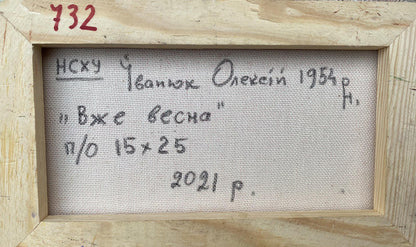 732
НСХУ Іванюк Олексій 1954 р.н.
„Вже весна"
п/о 15×25
2021 р.